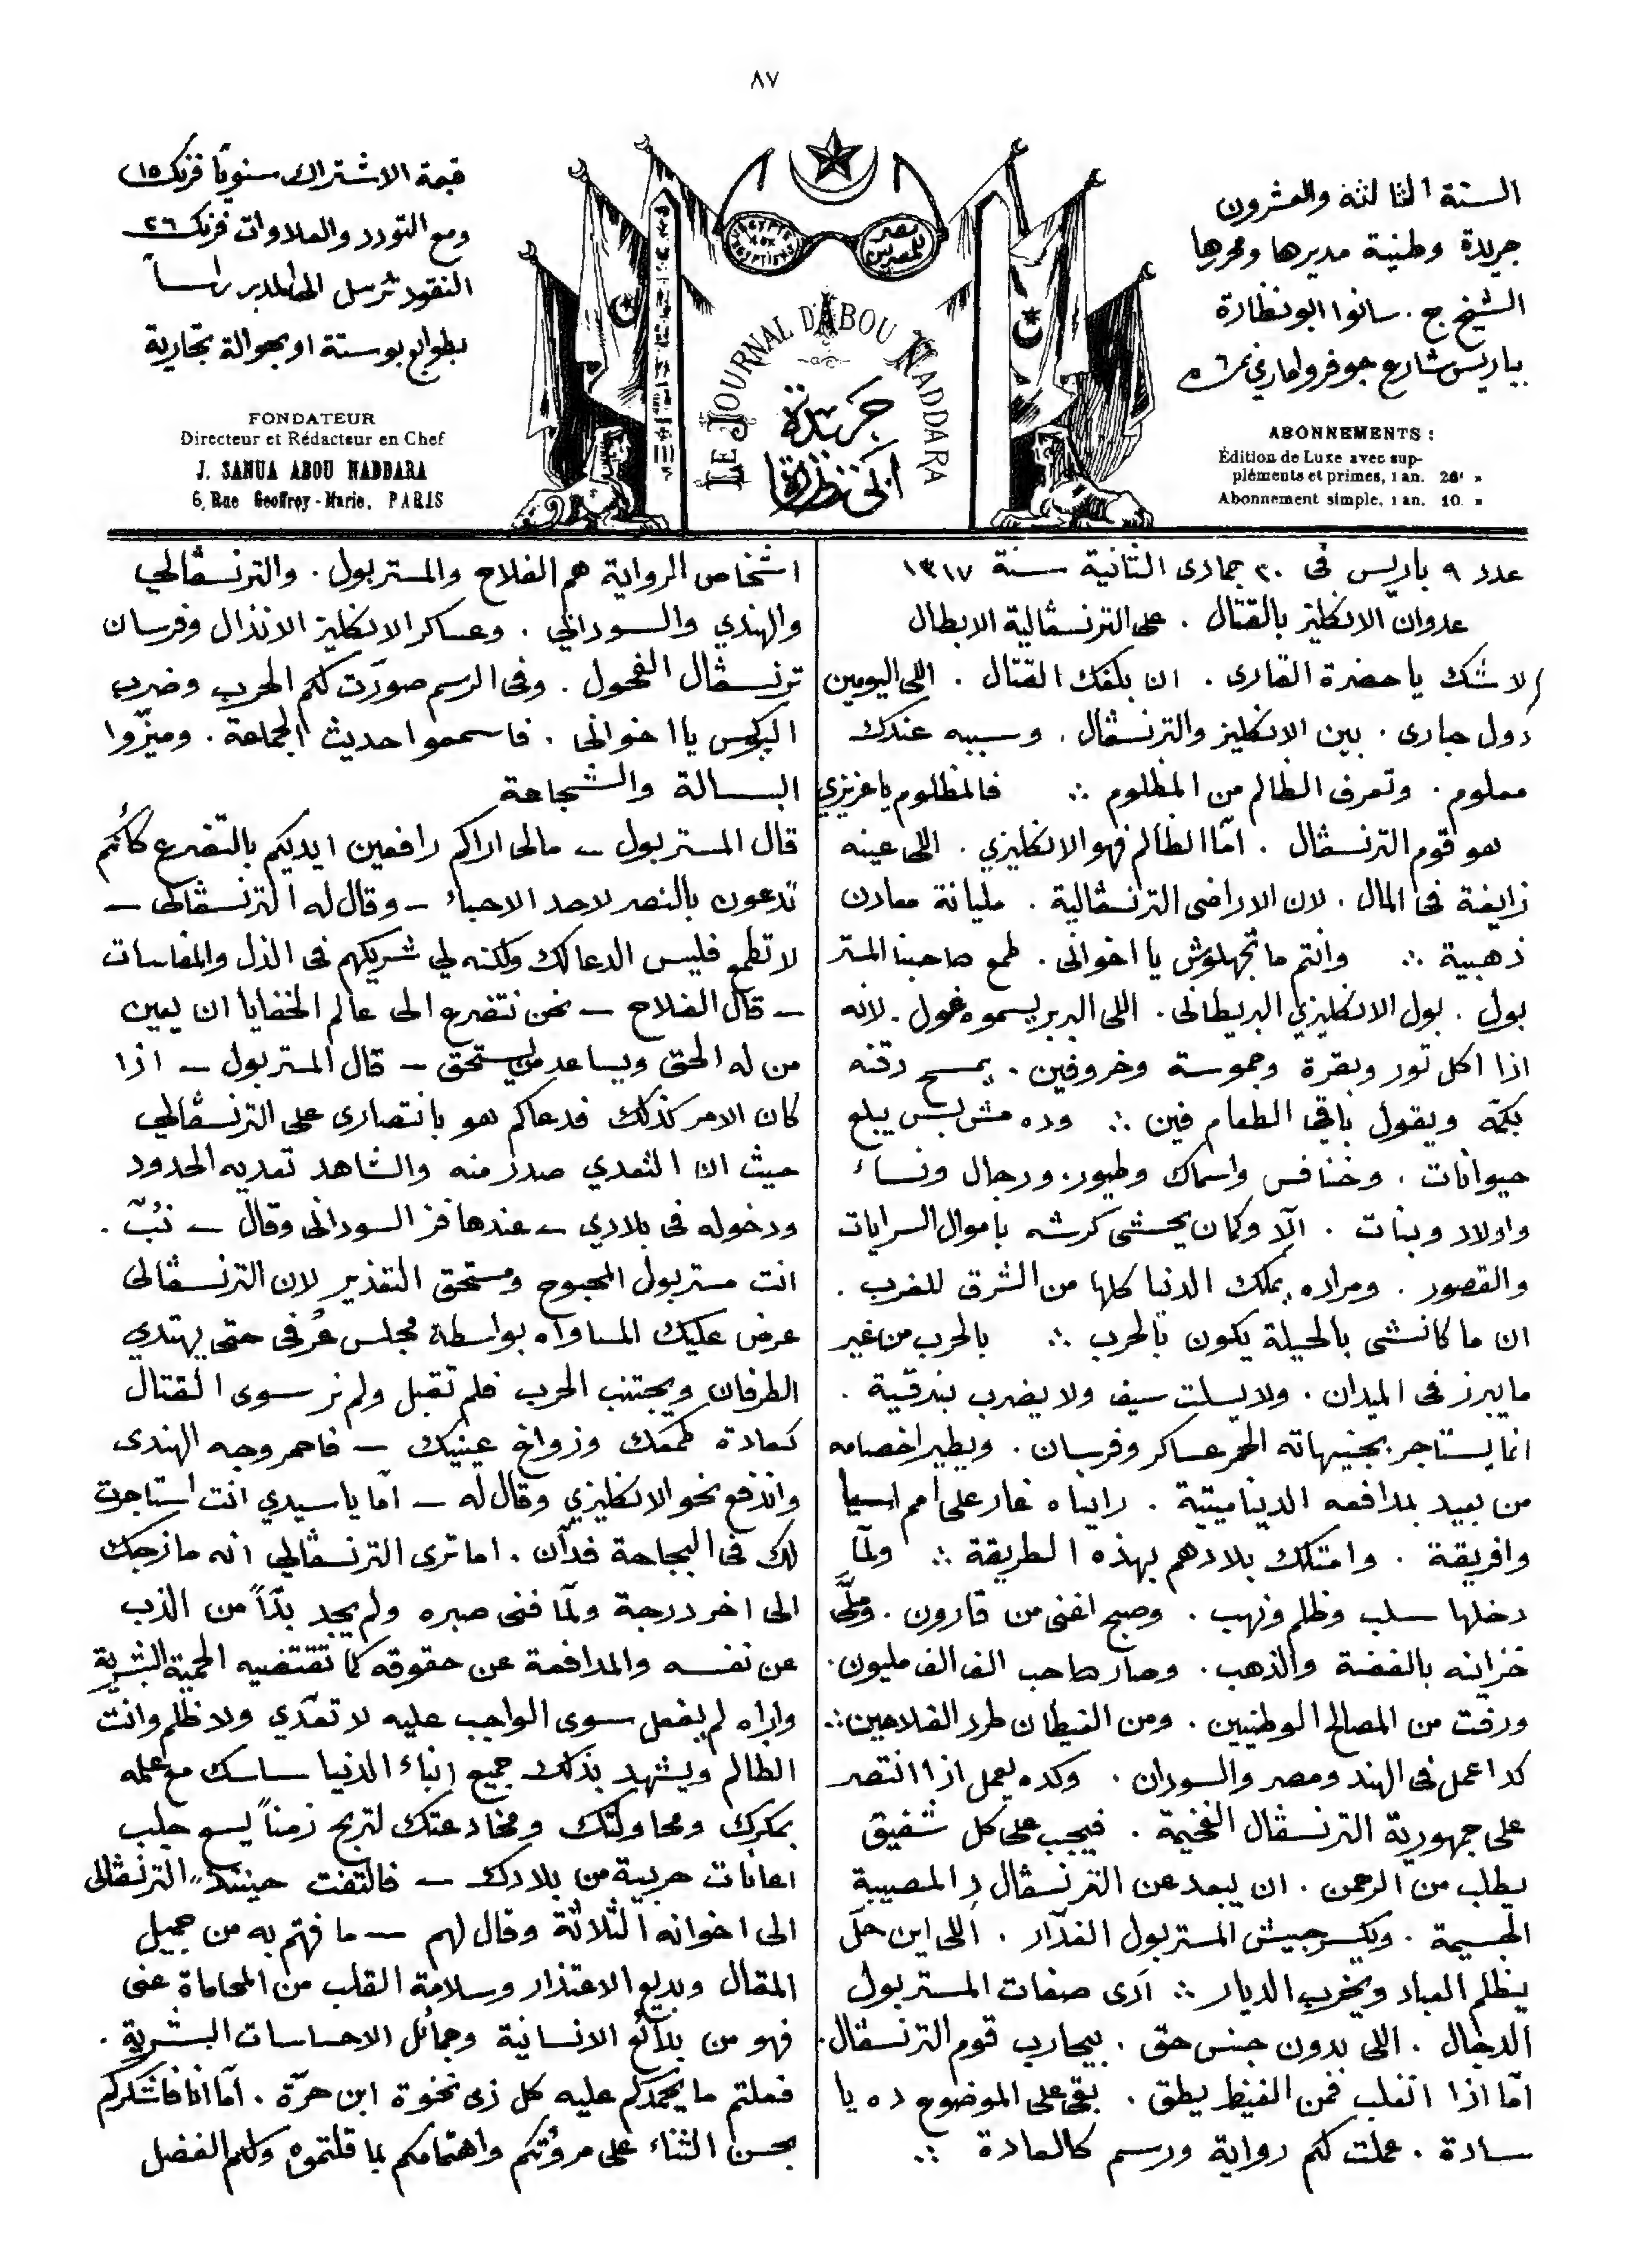 ٨٧
السنة الثالثة والعشرون
جريدة وطنية مديرها ومحررها
الشيخ ج. سانوا ابو نظارة
بباريس شارع جوفروا ماري نمرة ٦
ABONNEMENTS :
Édition de Luxe avec sup-
pléments et primes, 1 an. 26f »
Abonnement simple, 1 an. 10 »
EGYPTE AUX EGYPTIENS
مصر للمصريين
LE JOURNAL D'ABOU NADDARA
جريدة
ابي نظارة
قيمة الاشتراك سنويًا فرنك ١٥
ومع التورد والعلاوات فرنك ٢٦
النقود ترسل الى المدير راساً
بطوابع بوستة او بحوالة تجارية
FONDATEUR
Directeur et Rédacteur en Chef
J. SANUA ABOU NADDARA
6, Rue Geoffroy-Marie, PARIS
عدد ٩ باريس فى ٢٠ جمادى الثانية سنة ١٣١٧
عدوان الانكليز بالقتال . على الترنسڤالية الابطال
لا شك يا حضرة القارى . ان بلغك القتال . اللى اليومين
دول جارى . بين الانكليز والترنسڤال . وسببه عندك
معلوم . وتعرف الظالم من المظلوم ∴ فالمظلوم يا عزيزي
هو قوم الترنسڤال . امّا الظالم فهو الانكليزي . اللى عينه
زايغة فى المال . لان الاراضى الترنسڤالية . مليانة معادن
ذهبية ∴ وانتم ما تجهلوش يا اخوانى . طمع صاحبنا المستر
بول . بول الانكليزي البريطانى . اللى البربر يسموه غول . لانه
اذا اكل تور وبقرة وجموسة وخروفين . يمسح دقنه
بكمّه ويقول باقي الطعام فين ∴ وده مش بس يبلع
حيوانات . وخنافس واسماك وطيور . ورجال ونساء
واولاد وبنات . الّا وكمان يحشى كرشه باموال السرايات
والقصور . ومراده يملك الدنيا كلها من الشرق للغرب .
ان ما كانشى بالحيلة يكون بالحرب ∴ بالحرب من غير
ما يبرز فى الميدان . ولا يسلت سيف ولا يضرب بندقية .
انما يستاجر بجنيهاته الحمر عساكر وفرسان . ويطير اخصامه
من بعيد بمدافعه الديناميتية . رايناه غار على امم اسيا
وافريقة . وامتلك بلادهم بهذه الطريقة ∴ ولمّا
دخلها سلب وظلم ونهب . وصبح اغنى من قارون . وملّى
خزاينه بالفضة والذهب . وصار صاحب الف الف مليون .
ورفت من المصالح الوطنيين . ومن الغيطان طرد الفلاحين ∴
كدا عمل فى الهند ومصر والسودان . وكده يعمل اذا انتصر
على جمهورية الترنسڤال الفخيمة . فيجب على كل شفيق
يطلب من الرحمن . ان يبعد عن الترنسڤال دِ المصيبة
الجسيمة . ويكسر جيش المستر بول الغدّار . اللى اين حلّ
يظلم العباد ويخرب الديار ∴ ادى صفات المستر بول
الدجال . اللى بدون جنس حق . بيحارب قوم الترنسڤال .
امّا اذا انغلب فمن الغيظ يطق . بقى على الموضوع ده يا
سادة . عملت لكم رواية ورسم كالعادة ∴
اشخاص الرواية هم الفلاح والمستر بول . والترنسڤالي
والهندي والسوداني . وعساكر الانكليز الانذال وفرسان
ترنسڤال الفحول . وفى الرسم صورت لكم الحرب وضرب
البوكس يا اخوانى . فاسمعوا حديث الجماعة . وميّزوا
البسالة والشجاعة
قال المستر بول – مالى اراكم رافعين ايديكم بالتضرع كأنكم
تدعون بالنصر لاحد الاحباء – وقال له الترنسڤالى –
لا تطمع فليس الدعا لك ولكنه لي شريكهم فى الذل والمقاسات
– قال الفلاح – نحن نتضرع الى عالم الخفايا ان يعين
من له الحق ويساعد من يستحق – قال المستر بول – اذا
كان الامر كذلك فدعاكم هو بانتصارى على الترنسڤالي
حيث ان التعدي صدر منه والشاهد تعديه الحدود
ودخوله فى بلادي – عندها فز السودانى وقال – تُبّ .
انت مستر بول المجبوح ومستحق التعذير لان الترنسڤالى
عرض عليك المساواه بواسطة مجلس عُرفى حتى يهتدي
الطرفان ويجتنب الحرب فلم تقبل ولم تر سوى القتال
كعادة طمعك وزواغ عينيك – فاحمر وجه الهندى
واندفع نحو الانكليزي وقال له – امّا يا سيدي انت استاجرت
لك فى البجاحة فدّان . اما ترى الترنسڤالي انه مازحك
الى اخر درجة ولمّا فنى صبره ولم يجد بدّاً من الذب
عن نفسه والمدافعة عن حقوقه كما تقتضيه الحمية البشرية
واراه لم يفعل سوى الواجب عليه لا تعدّي ولا ظلم وانت
الظالم ويشهد بذلك جميع ابناء الدنيا ساسك مع علمه
بمكرك ومحاولتك ومخادعتك لتربح زمناً يسع جلب
اعانات حربية من بلادك – فالتفت حينئذ الترنسڤالى
الى اخوانه الثلاثة وقال لهم – ما فهتم به من جميل
المقال وبديع الاعتذار وسلامة القلب من المحاماة عنى
فهو من بدائع الانسانية وجمائل الاحساسات البشرية .
فعلتم ما يحمدكم عليه كل ذى نخوة ابن حرّة . امّا انا فاشكركم
بحسن الثناء على مروّتكم واهتمامكم بما قلتموه ولكم الفضل